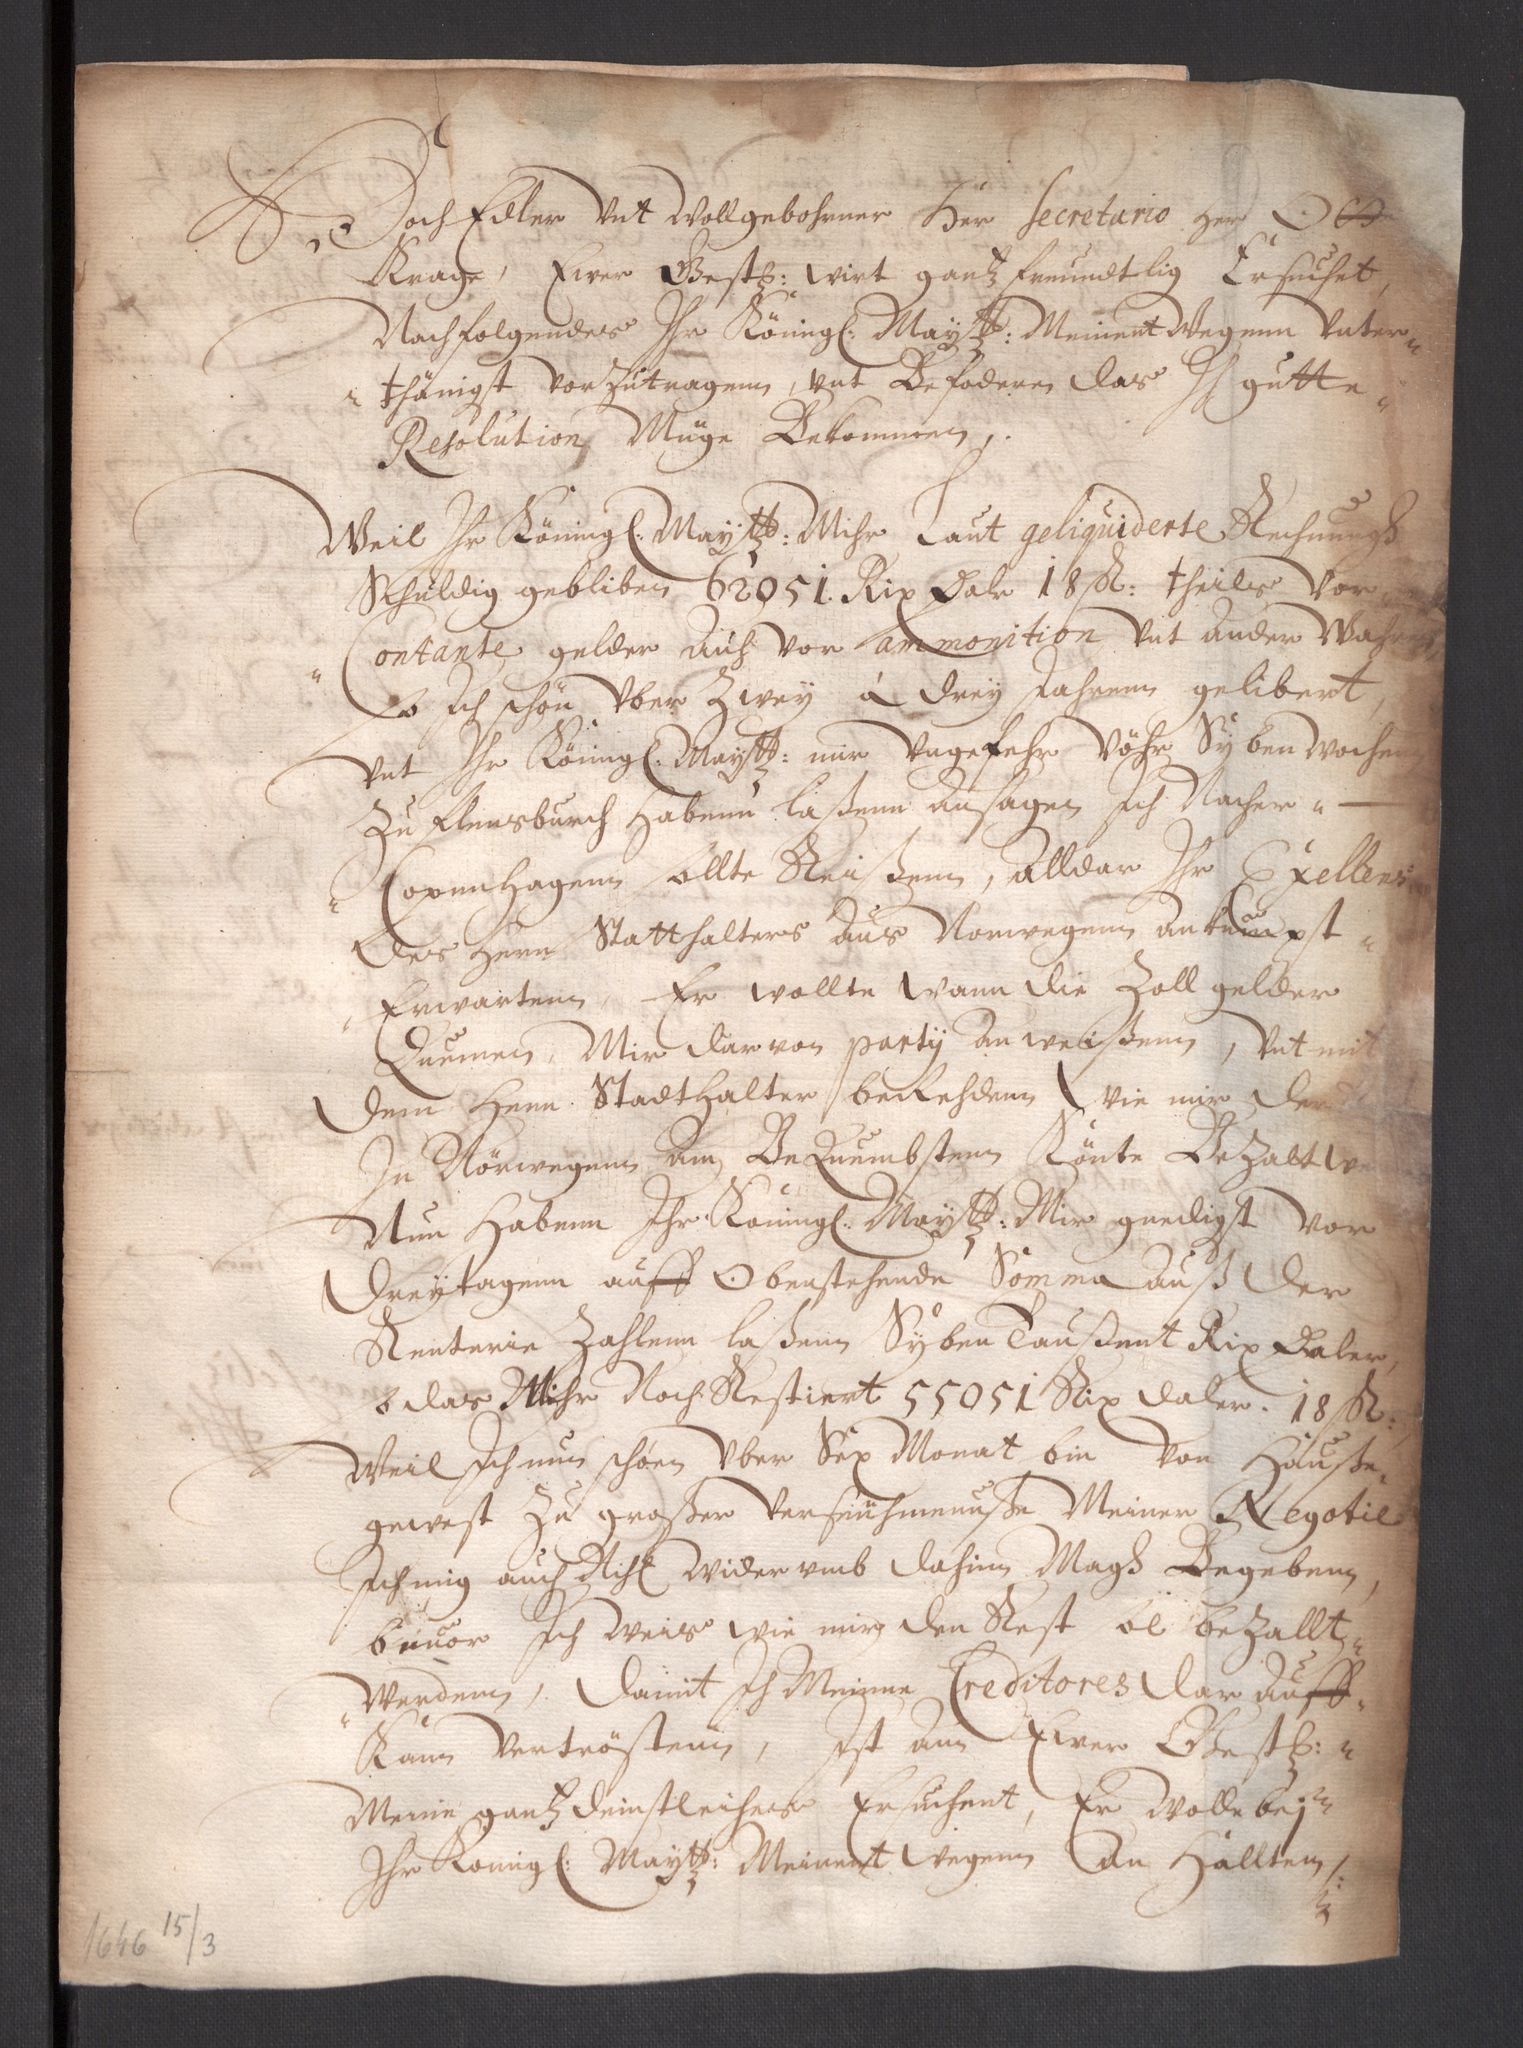 HochEdler Vnt Wollgebohrner Her Secretario Her Otte
Krage, Ewer Gestr: wirt gantz freundtlig Ersuchet,
Nachfolgendes Ihr Königl: Maytt: Meinent Wegenn Vnter-
thänigst vorZutragenn, vnt Befodern das Ich gutte
Resolution Müge Bekommen,.
Weil Ihr Königl: Maytt: Mihr Laut geliquiderte Rechnungh
Schuldig gebliben 62051. Rix Dalr 18 ß: theils Vor
Contante gelder auch Vor ammonition Vnt ander Wahren
So Ich schon Vber Zwey á drey Jahrenn gelibert,
Vnt Ihr Königl: Maytt: mir Vngefehr Vöhr Syben Wochen
Zu Flensburch Habenn laßenn ansagen Ich Nacher
Copenhagenn sollte Reißenn, alldar Ihr Exellens
des Hern Statthalters aus Norwegenn ankumpst
Erwartenn, Er wollte wann die Zoll gelder
Quemen, Mir dar von party anweißenn, Vnt mit
dem Hern Stadthalter beRehdenn Wie mir der
In Norwegenn am BeQuembstenn Könte BeZalt
Nun Habenn Ihr Königl: Maytt: Mir gnedigst Vor
dreytagenn auff Obenstehende Somma auß der
Renterie Zahlenn laßenn Syben Taußent Rix Daler,
So das Mihr Noch Restiert 55051 Rix daler. 18 ß:
Weil Ich nun schoen Vber Sex Monat bin Von Hauße
gewest Zu großer Verseuhmenuße Meiner Negotie
Ich mig auch Nicht wider vmb dahinn Magh Begebenn,
beuor Ich weis wie mir den Rest sol beZallt
Werdenn, damit Ich Meinne Creditores dar auff
Kann Vertröstenn, Ist ann Ewer Gestr:
Meine gantz deinstleiches Ersuchent, Er wolle bej
Ihr Königl: Maytt: Meinent wegenn an Hallten
1646 15/3